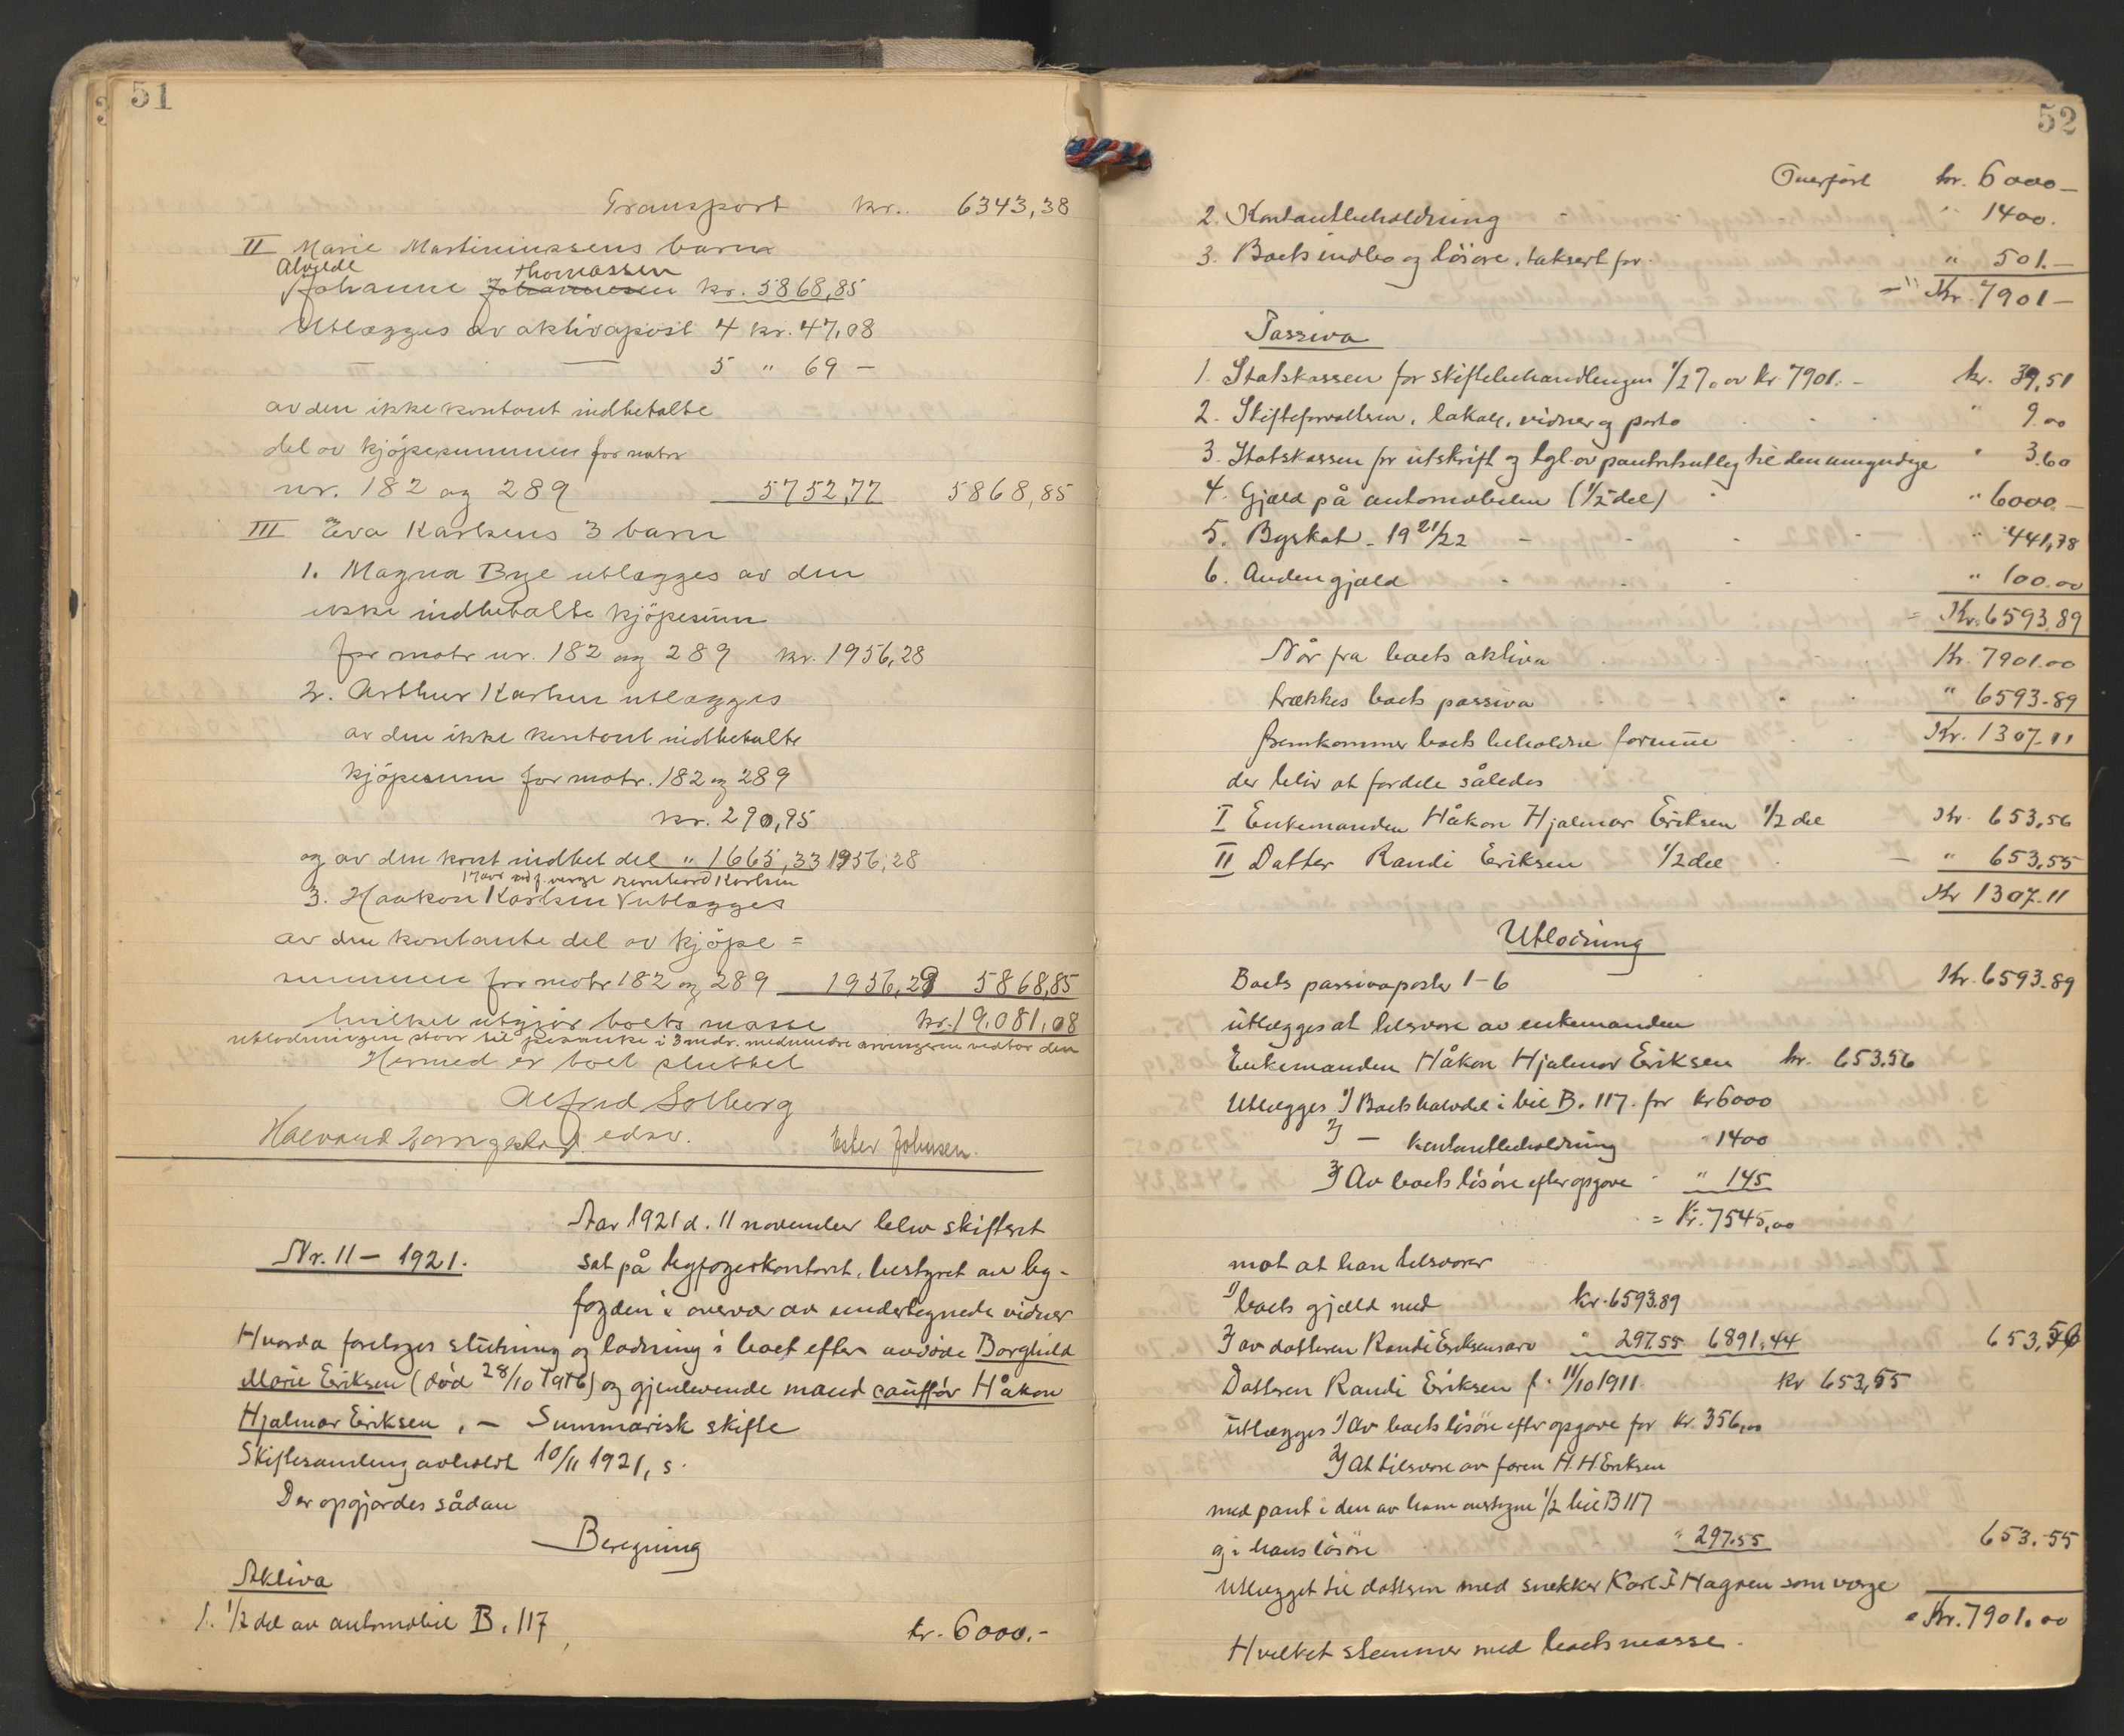 51
Transport kr. 6343,38
II Marie Martiniussens barn
Alvilde Thomassen
Johanne Johannesen kr. 5868,85
Utlægges av aktivapost 4 kr. 47,08
— 5 " 69 —
av den ikke kontant indbetalte
del av kjøpesummen for matr
nr. 182 og 289 5752,77 5868,85
III Eva Karlsens 3 barn
1. Magna Bye utlægges av den
ikke indbetalte kjøpesum
for matr nr. 182 og 289 kr. 1956,28
2. Arthur Karlsen utlægges
av den ikke kontant indbetalte
kjøpesum for matr. 182 og 289
kr. 290,95
og av den kont indbet del " 1665,33 1956,28
17 aar ved f. verge Bernhard Karlsen
3. Haakon Karlsen utlægges
av den kontante del av kjøpe=
summen for matr 182 og 289 1956,29 5868,85
hvilket utgjør boets masse kr. 19.081,08
utlodningen staar til paaanke i 3 mdr. medmindre arvingerne vedtar den
Hermed er boet sluttet
Alfred Solberg
edsv. Ester Johnsen.
Nr. 11 – 1921.
Aar 1921 d. 11 november blev skifteret
sat på byfogedkontoret, bestyret av by-
fogden i overvær av undertegnede vidner
Hvorda foretoges slutning og lodning i boet efter avdøde Borghild
Marie Eriksen (død 28/10 1916) og gjenlevende mand cauffør Håkon
Hjalmar Eriksen, — Summarisk skifte
Skiftesamling avholdt 10/11 1921, s.
Der opgjordes sådan
Beregning
Aktiva
1. 1/2 del av automobil B. 117 kr. 6000.-
52
Overført kr. 6000 —
2. Kontantbeholdning " 1400.
3. Boets indbo og løsøre, taksert for " 501.—
Kr. 7901 —
Passiva
1. Statskassen for skiftebehandlingen 1/2 % av kr. 7901.- kr. 39,51
2. Skifteforvalteren, lokale, vidner og porto " 9.00
3. Statskassen for utskrift og tgl. av panteheftelse til den umyndige " 3.60
4. Gjæld på automobilen (1/2 del) " 6000.—
5. Byskat - 1921/22 " 441,78
6. Anden gjæld " 100.00
= Kr. 6593.89
Når fra boets aktiva Kr. 7901.00
trækkes boets passiva " 6593.89
fremkommer boets beholdne formue Kr. 1307.11
der blir at fordele således
I Enkemanden Håkon Hjalmar Eriksen 1/2 del Kr. 653,56
II Datter Randi Eriksen 1/2 del — " 653,55
Kr 1307.11
Utlodning
Boets passivaposter 1-6 Kr. 6593.89
utlægges at tilsvare av enkemanden
Enkemanden Håkon Hjalmar Eriksen kr. 653.56
Utlægges 1) Boets halvdel i bil B. 117. for kr 6000
2) — kontantbeholdning " 1400
3) Av boets løsøre efter opgave " 145
= Kr. 7545,00
mot at han tilsvarer
1) boets gjæld med kr. 6593.89
2) av datteren Randi Eriksens arv " 297.55 6891.44 653,56
Datteren Randi Eriksen f. 11/10 1911 kr 653,55
utlægges 1) av boets løsøre efter opgave for kr. 356,00
2) At tilsvare av faren H. H Eriksen
med pant i den av ham overtagne 1/2 bil B 117
og i hans løsøre " 297.55 653.55
Utlægget til datteren med snekker Karl J Hagnen som værge
= Kr. 7901.00
Hvilket stemmer med boets masse.